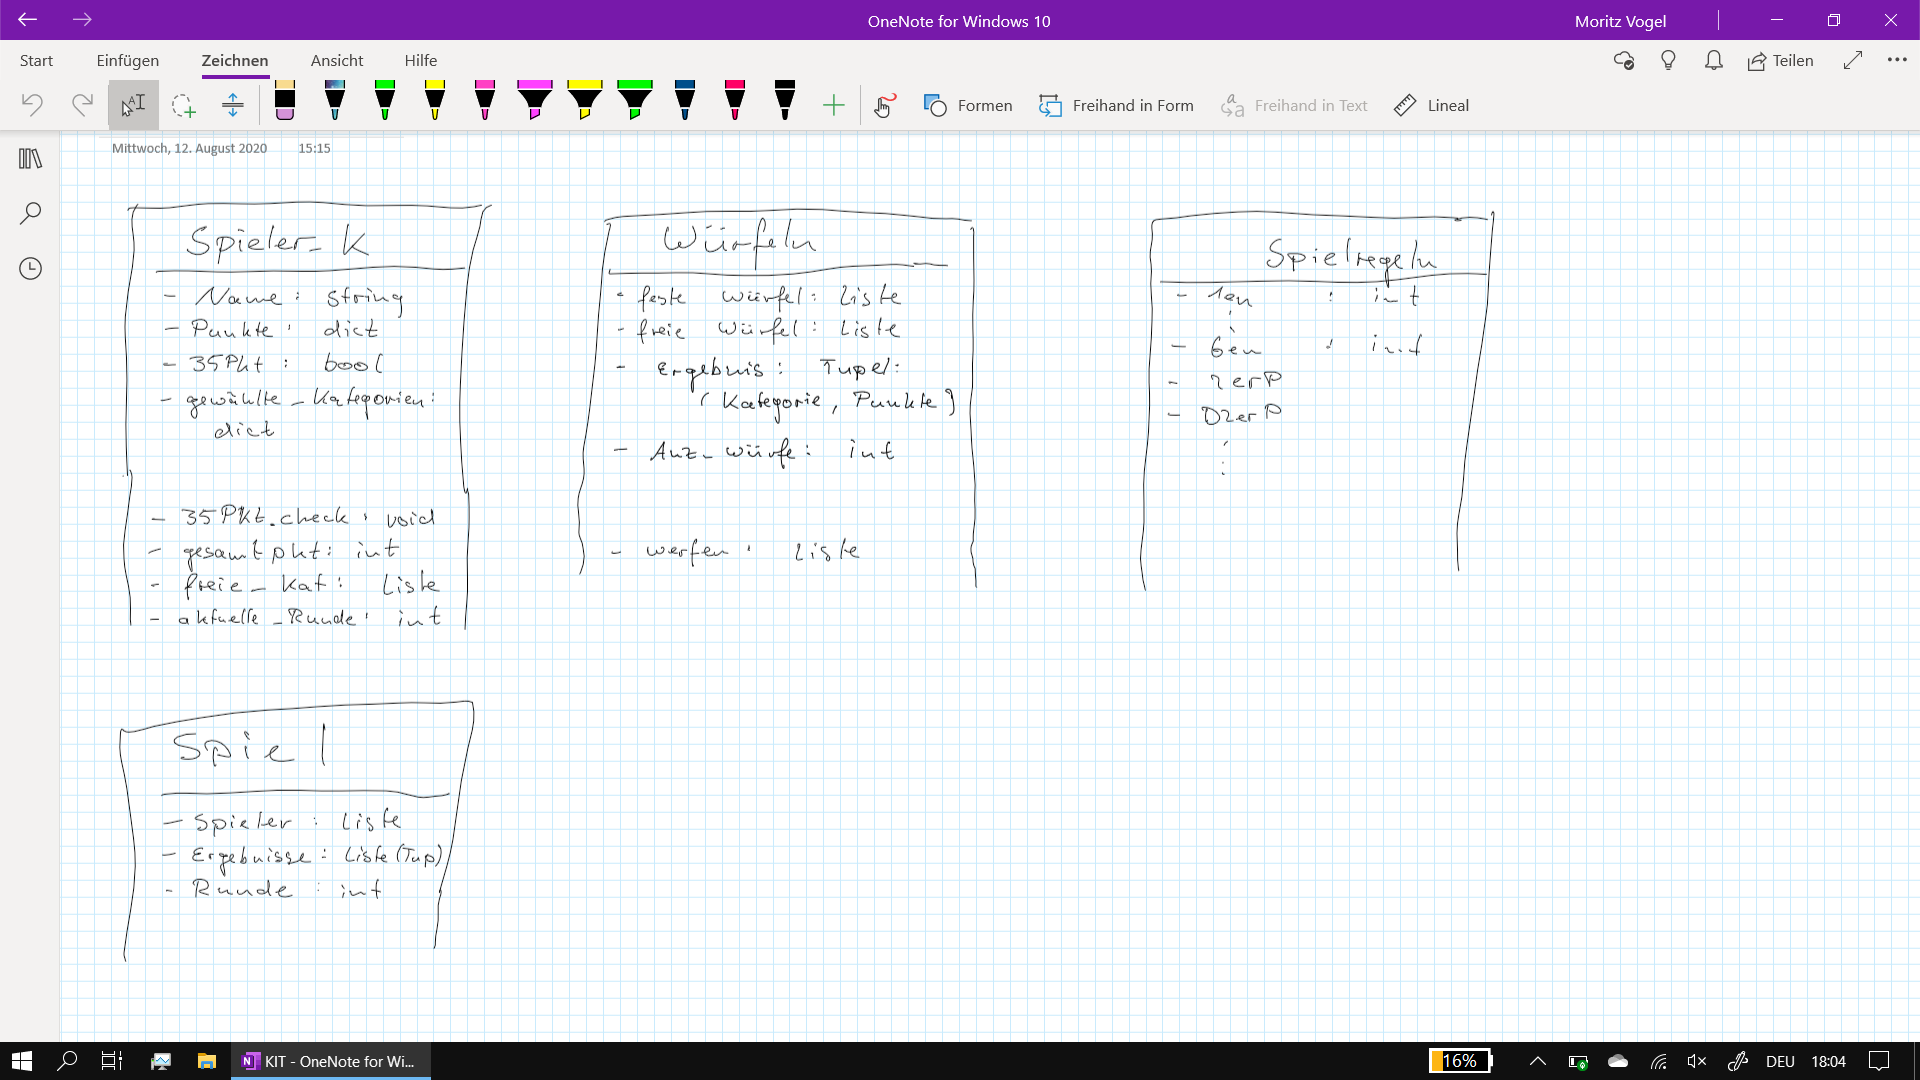 OneNote for Windows 10
Moritz Vogel
Start
Einfügen
Zeichnen
Ansicht
Hilfe
Teilen
Formen
Freihand in Form
Freihand in Text
Lineal
Mittwoch, 12. August 2020
15:15
Spieler_K
- Name : string
- Punkte : dict
- 35Pkt : bool
- gewählte_Kategorien:
dict
- 35Pkt_check : void
- gesamtpkt: int
- freie_Kat: Liste
- aktuelle_Runde: int
Würfeln
- feste Würfel: Liste
- freie Würfel: Liste
- Ergebnis: Tupel:
(Kategorie, Punkte)
- Anz_Würfe: int
- werfen : Liste
Spielregeln
- 1en : int
- 6en : int
- 2erP
- D2erP
Spiel
- Spieler : Liste
- Ergebnisse: Liste(Tup)
- Runde : int
KIT - OneNote for Wi...
16%
DEU
18:04